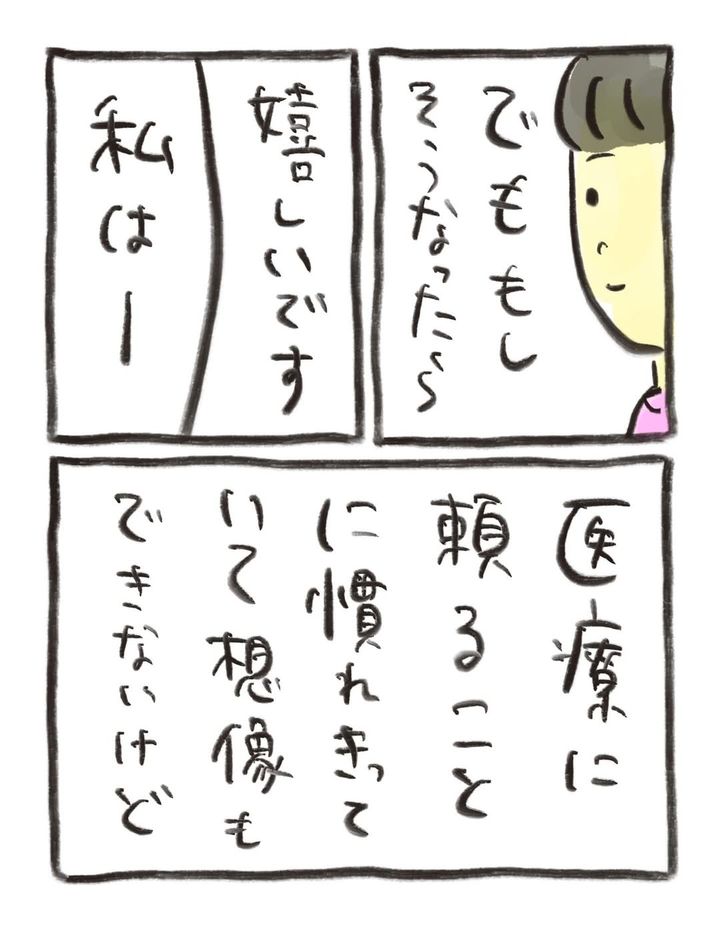 でももし
そうなったら
嬉しいです
私はー
医療に
頼ること
に慣れきって
いて想像も
できないけど